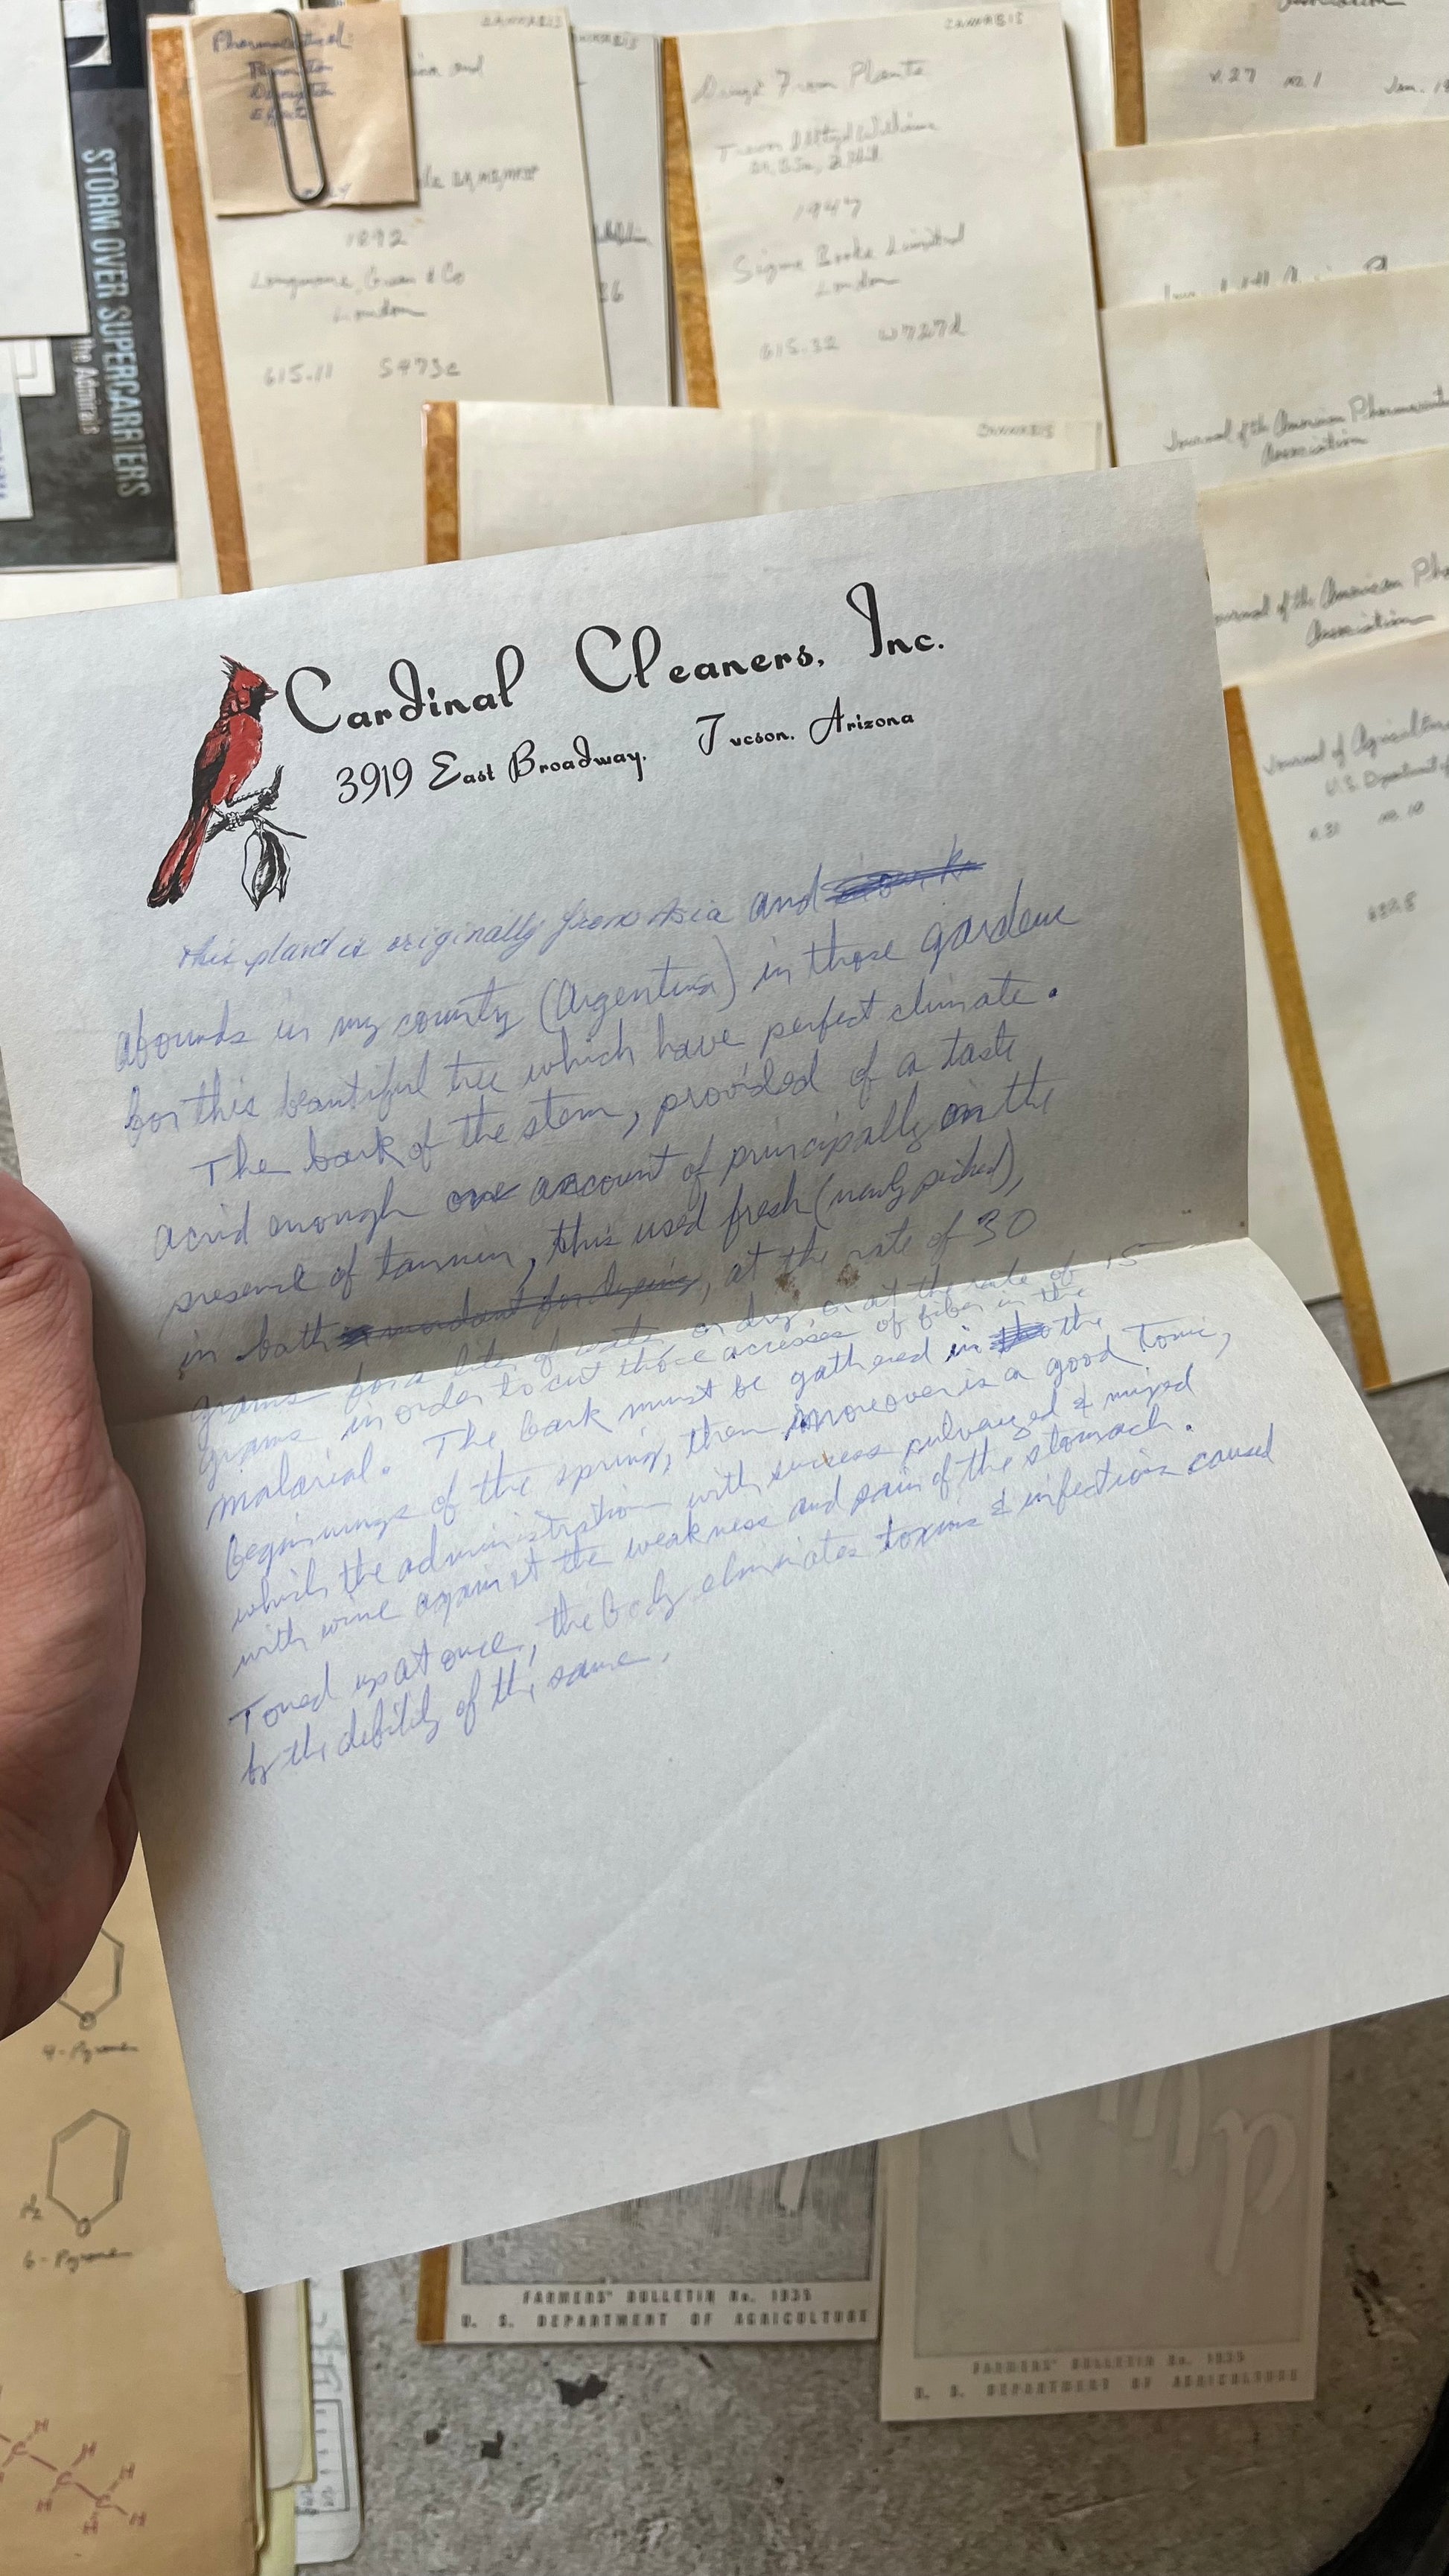 STORM OVER SUPERCARRIERS
the Admirals
Pharmaceutical:
CANNABIS
1892
Longmans, Green & Co
London
615.11
CANNABIS
Drugs From Plants
1947
Sigma Books Limited
London
615.32 W727d
Association
v. 27 no. 1 Jan.
CANNABIS
Journal of the American
Association
Journal of the American
Association
Journal of
U.S. Department of
no. 10
Cardinal Cleaners, Inc.
3919 East Broadway. Tucson. Arizona
This plant is originally from Asia and
abounds in my county (Argentina) in those gardens
for this beautiful tree which have perfect climate.
The bark of the stem, provided of a taste
acrid enough on account of principally on the
presence of tannin, this used fresh (newly picked),
in bath mordant for dyeing, at the rate of 30
grams for a liter of water or dry, or at the rate of 15
grams in order to cut those accesses of fiber in the
malarial. The bark must be gathered in the
beginnings of the spring, then moreover is a good tonic,
which the administration with success pulverized & mixed
with wine against the weakness and pain of the stomach.
Toned up at once, the body eliminates toxins & infections caused
by the debility of the same.
4-Pyrone
6-Pyrone
FARMERS' BULLETIN No. 1935
U. S. DEPARTMENT OF AGRICULTURE
FARMERS' BULLETIN No. 1935
U. S. DEPARTMENT OF AGRICULTURE
H
C
H
C
H
H
C
H
H
H